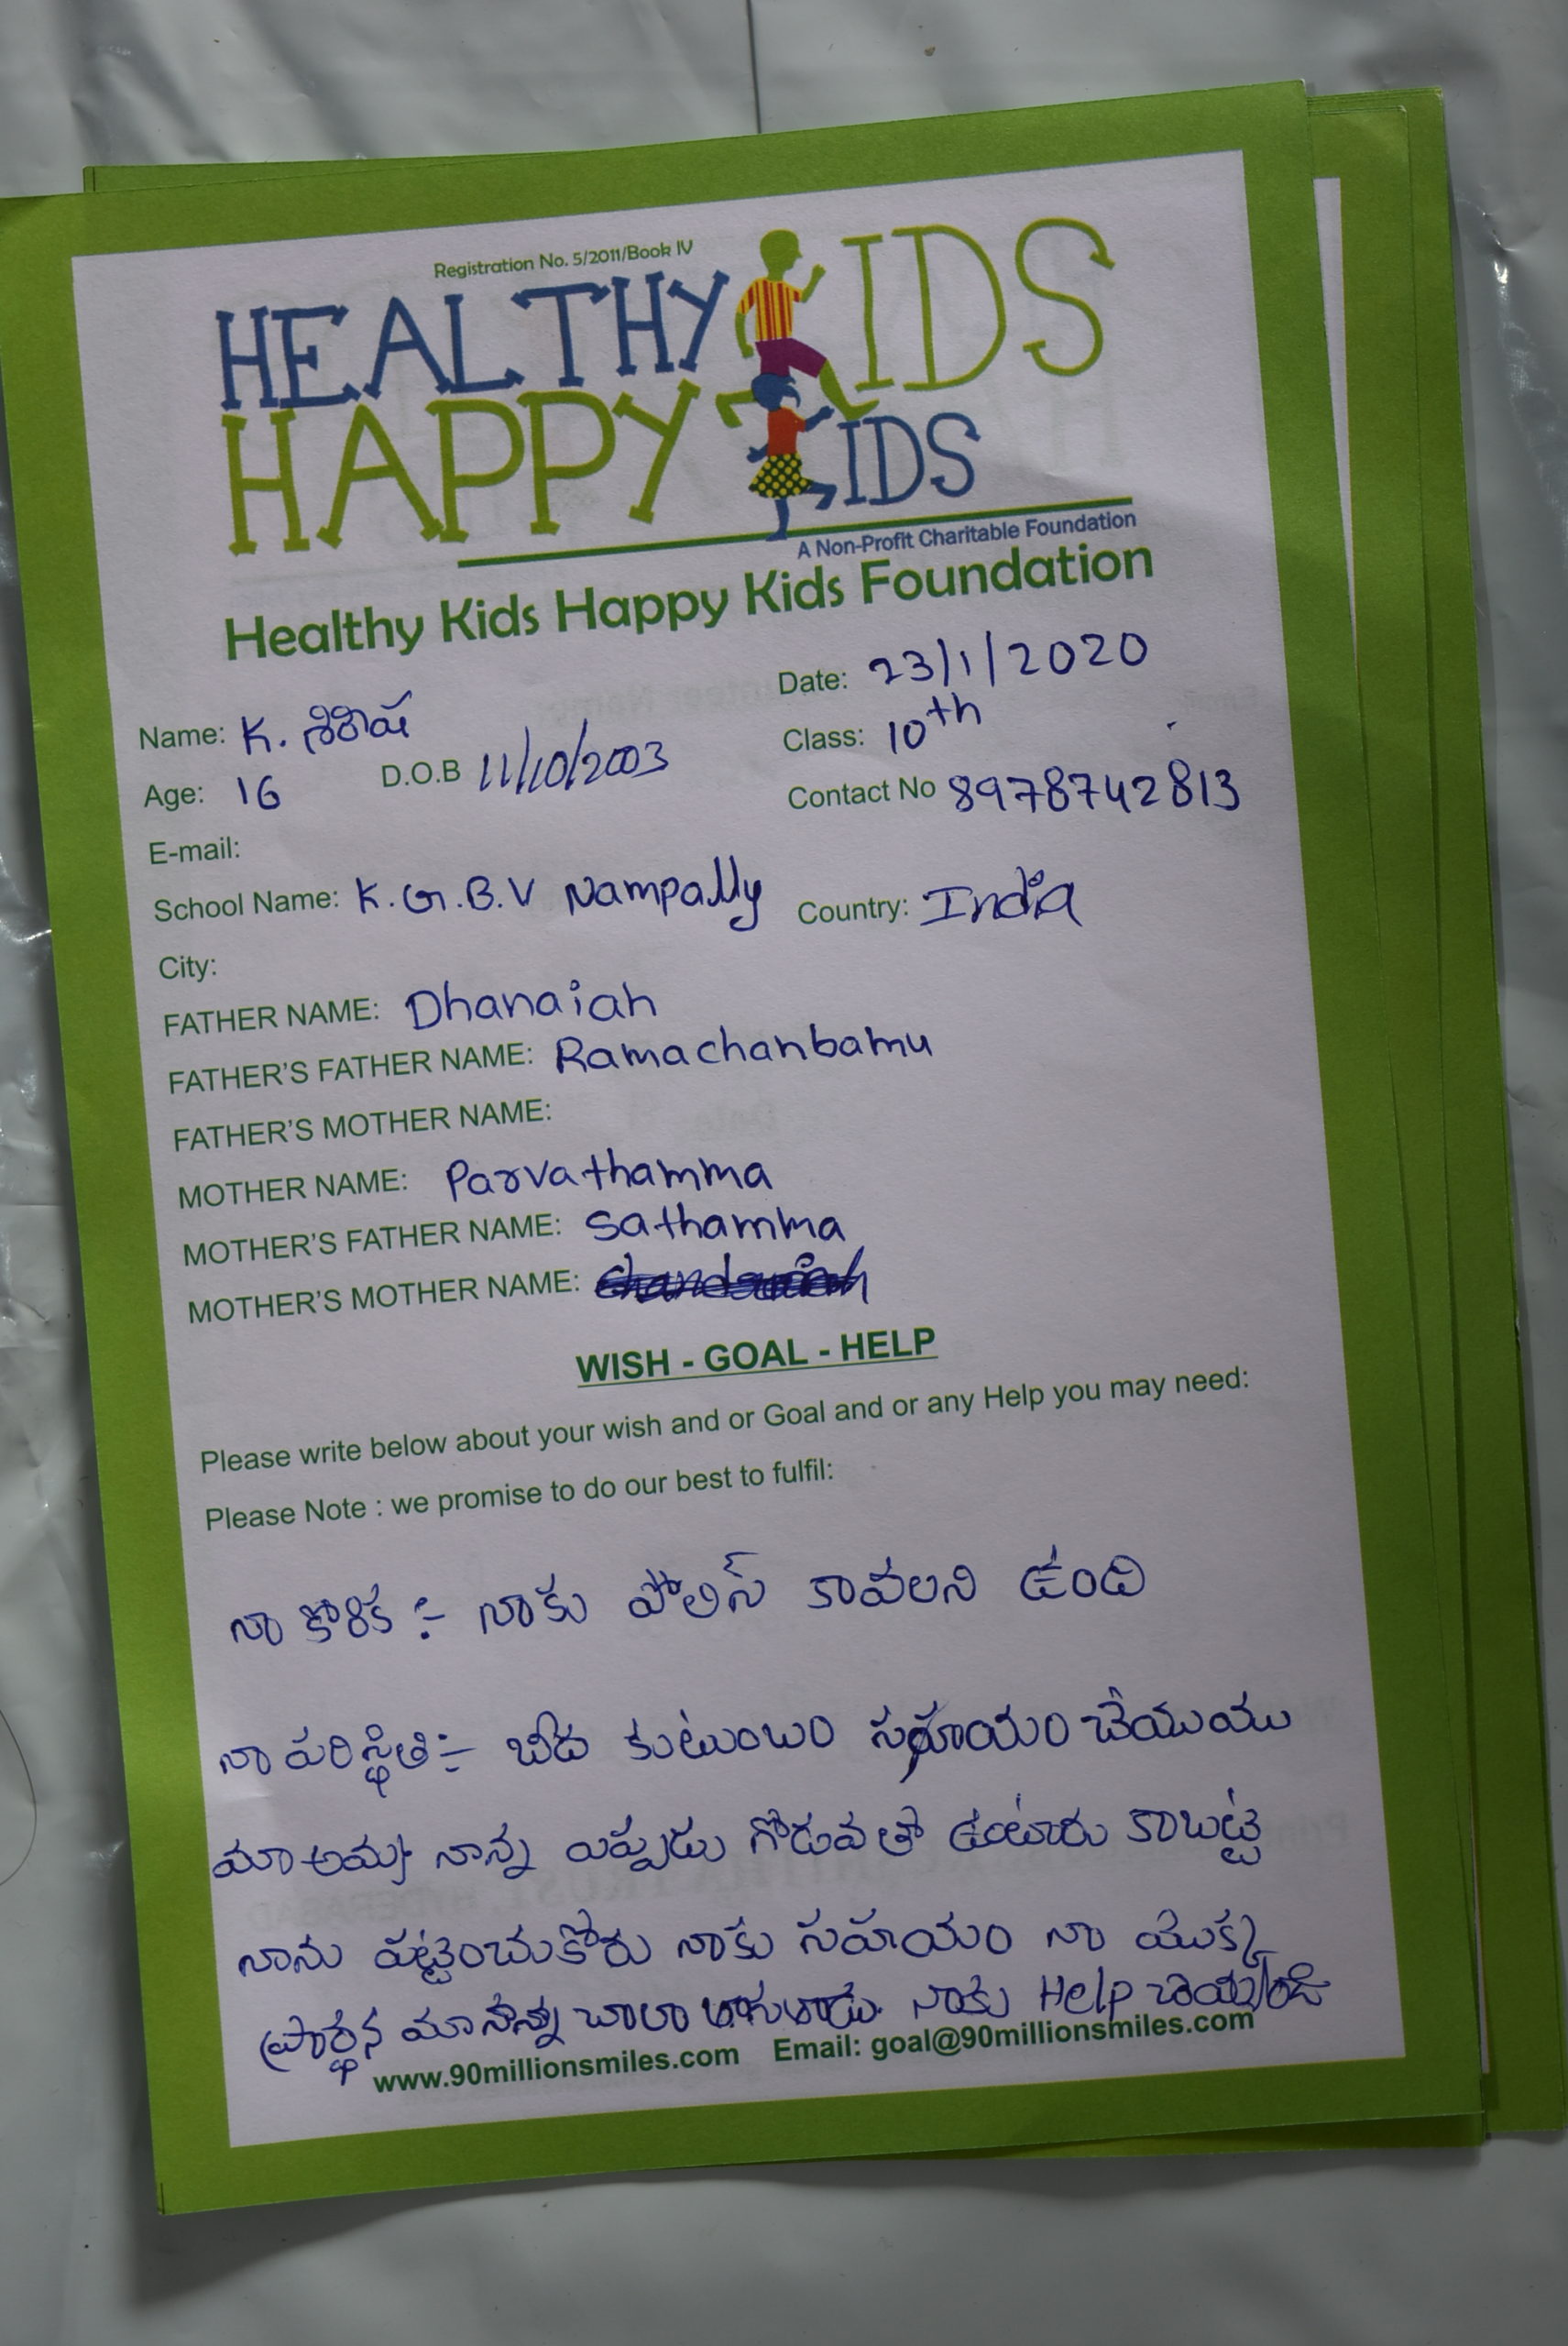 Registration No. 5/2011/Book IV
HEALTHY KIDS
HAPPY KIDS
A Non-Profit Charitable Foundation
Healthy Kids Happy Kids Foundation
Date: 23/1/2020
Name: K. శిరిష
Class: 10th
Age: 16 D.O.B 11/10/2003
Contact No 8978742813
E-mail:
School Name: K.G.B.V Nampally Country: India
City:
FATHER NAME: Dhanaiah
FATHER'S FATHER NAME: Ramachanbamu
FATHER'S MOTHER NAME:
MOTHER NAME: Parvathamma
MOTHER'S FATHER NAME: Sathamma
MOTHER'S MOTHER NAME:
WISH - GOAL - HELP
Please write below about your wish and or Goal and or any Help you may need:
Please Note : we promise to do our best to fulfil:
నా కోరిక :- నాకు పోలిస్ కావలని ఉంది
నా పరిస్థితి :- బీద కుటుంబం సహాయం చేయుము
మా అమ్మ నాన్న యెప్పుడు గోడువతో ఉంటారు కాబట్టి
నాను పట్టించుకోరు నాకు సహయం నా యొక్క
ప్రార్థన మా నాన్న చాలా నాకు Help చెయ్యండి
www.90millionsmiles.com Email: goal@90millionsmiles.com